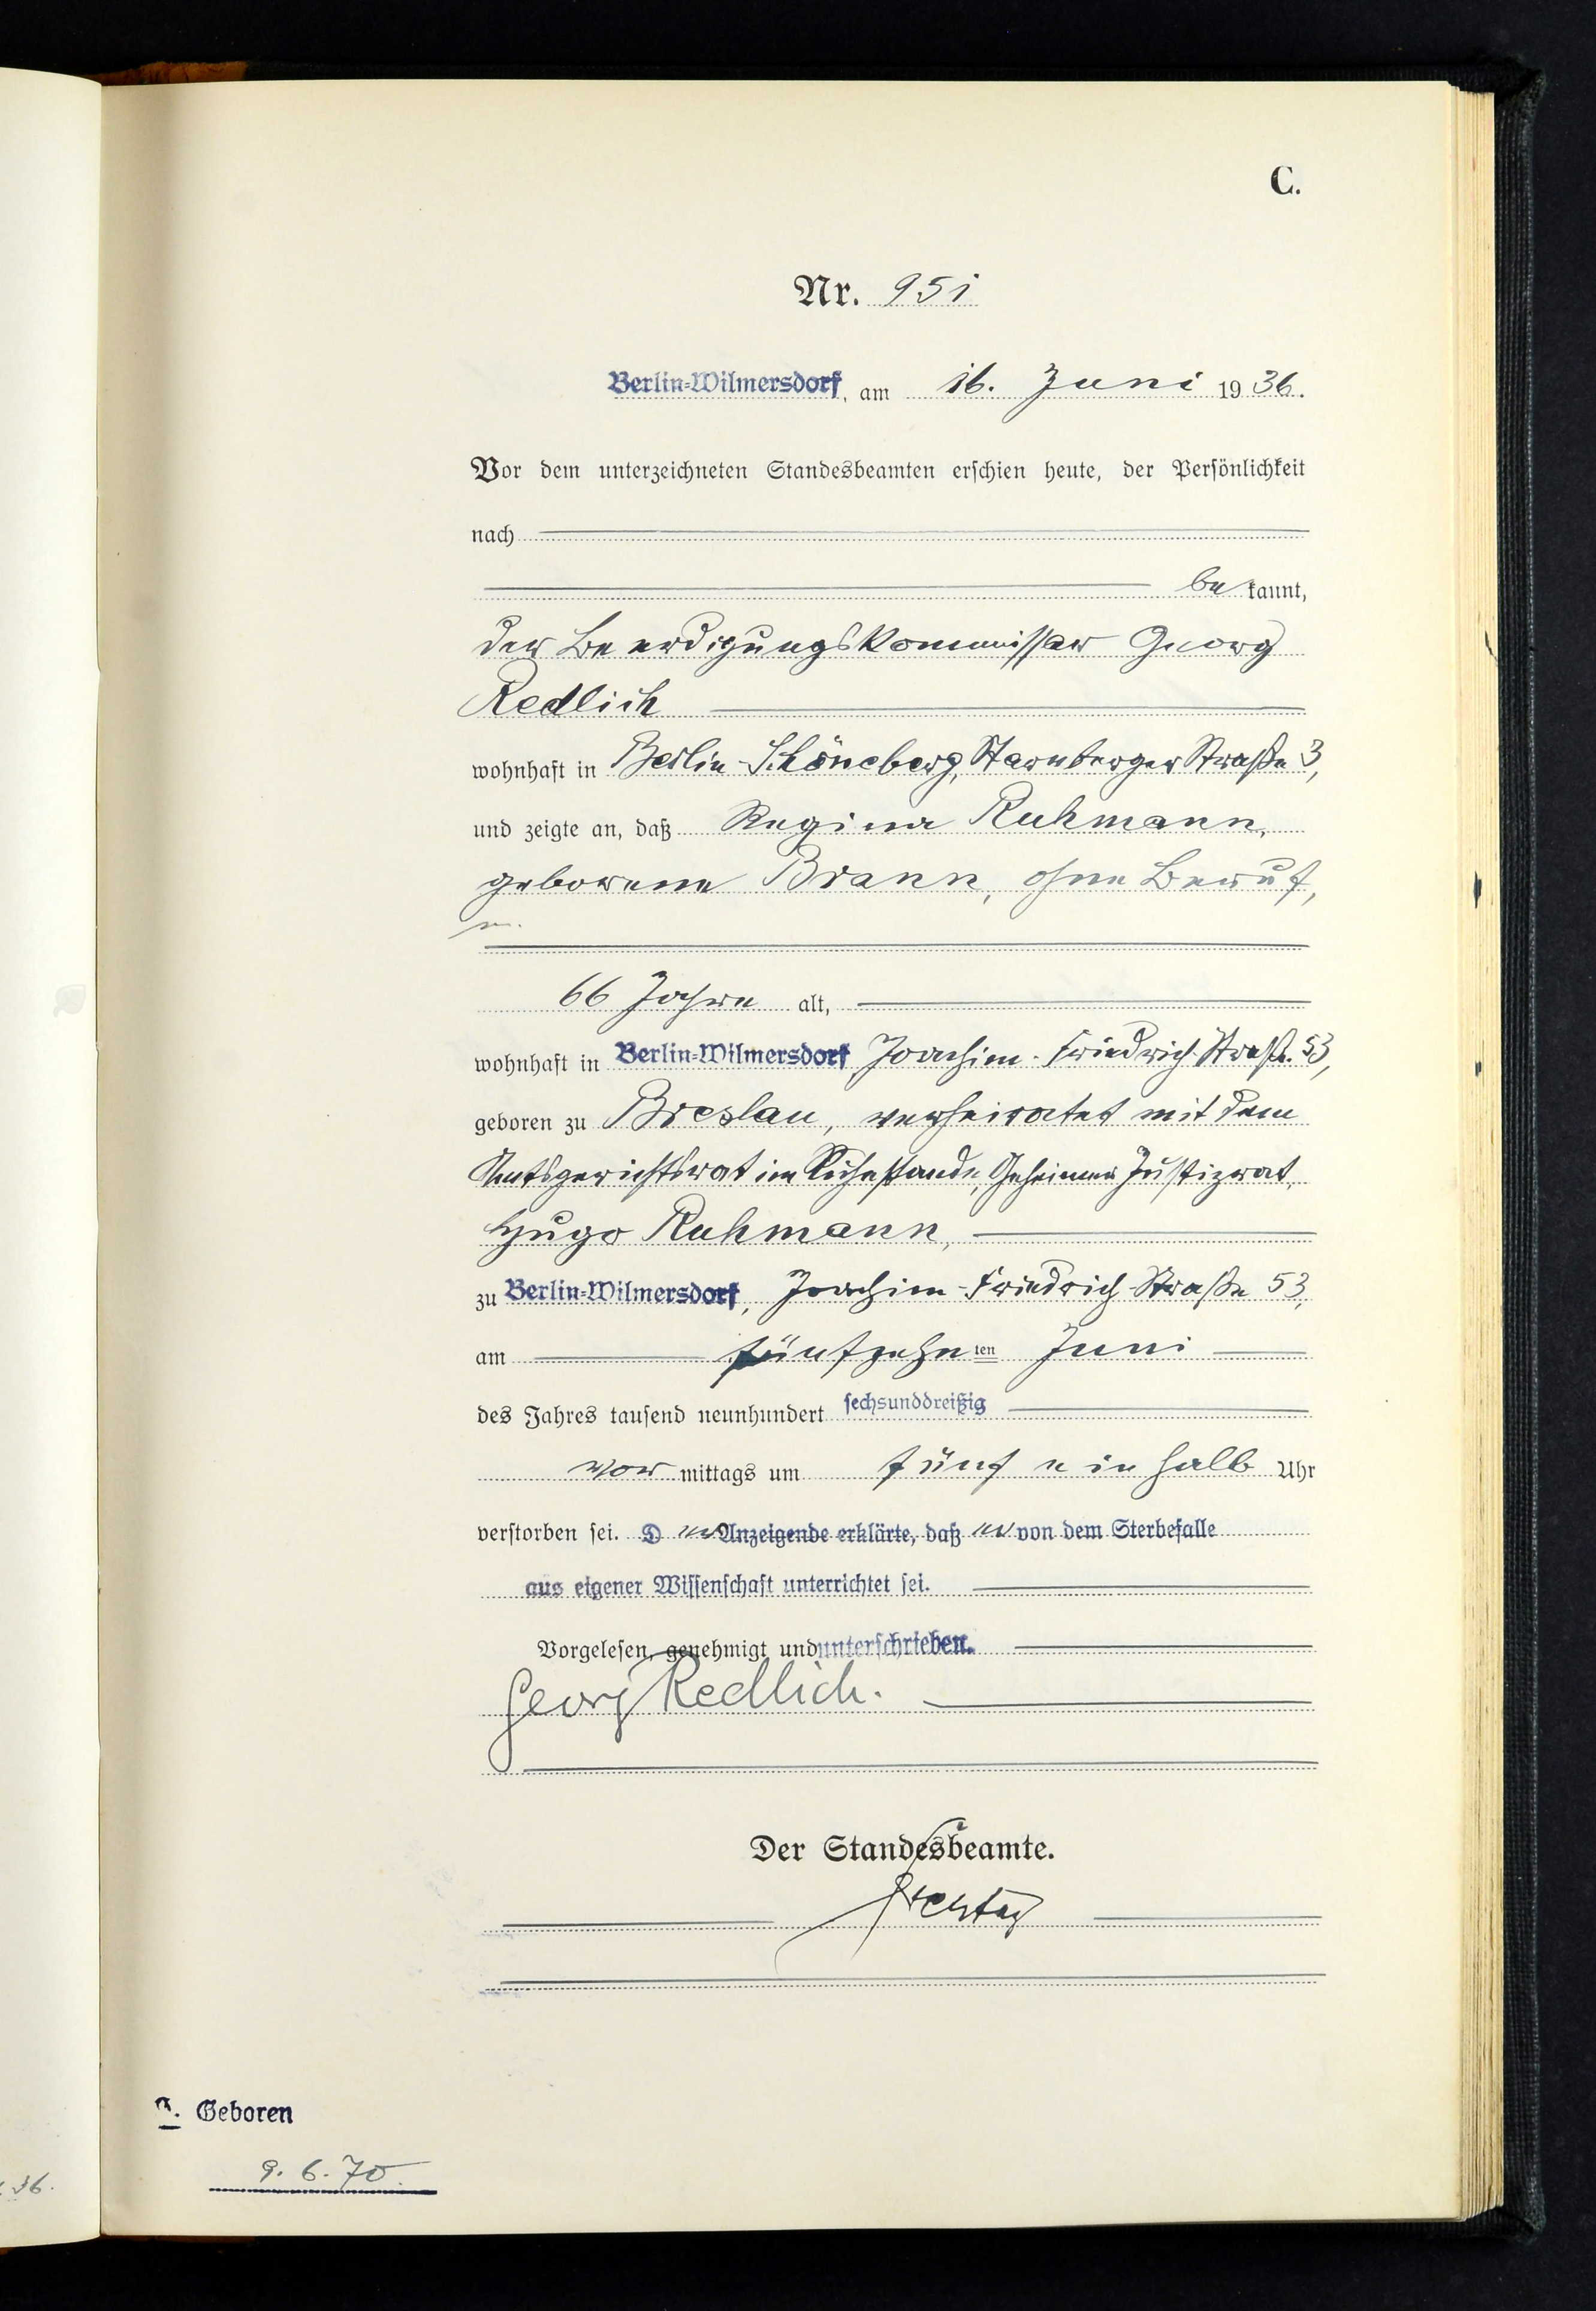 C.
Nr. 951
Berlin-Wilmersdorf, am 16. Juni 1936.
Vor dem unterzeichneten Standesbeamten erschien heute, der Persönlichkeit
nach
be kannt,
der Beerdigungskommissar Georg
Redlich
wohnhaft in Berlin-Schöneberg, Starnberger Straße 3,
und zeigte an, daß Regina Ruhmann,
geborene Brann, ohne Beruf,
66 Jahre alt,
wohnhaft in Berlin-Wilmersdorf Joachim-Friedrich-Straße 53,
geboren zu Breslau, verheiratet mit dem
Amtsgerichtsrat im Ruhestande, Geheimen Justizrat,
Hugo Ruhmann,
zu Berlin-Wilmersdorf, Joachim-Friedrich-Straße 53,
am fünfzehnten Juni
des Jahres tausend neunhundert sechsunddreißig
vor mittags um fünf ein halb Uhr
verstorben sei. D er Anzeigende erklärte, daß er von dem Sterbefalle
aus eigener Wissenschaft unterrichtet sei.
Vorgelesen, genehmigt und unterschrieben.
Georg Redlich.
Der Standesbeamte.
Geboren
9. 6. 70.
36.